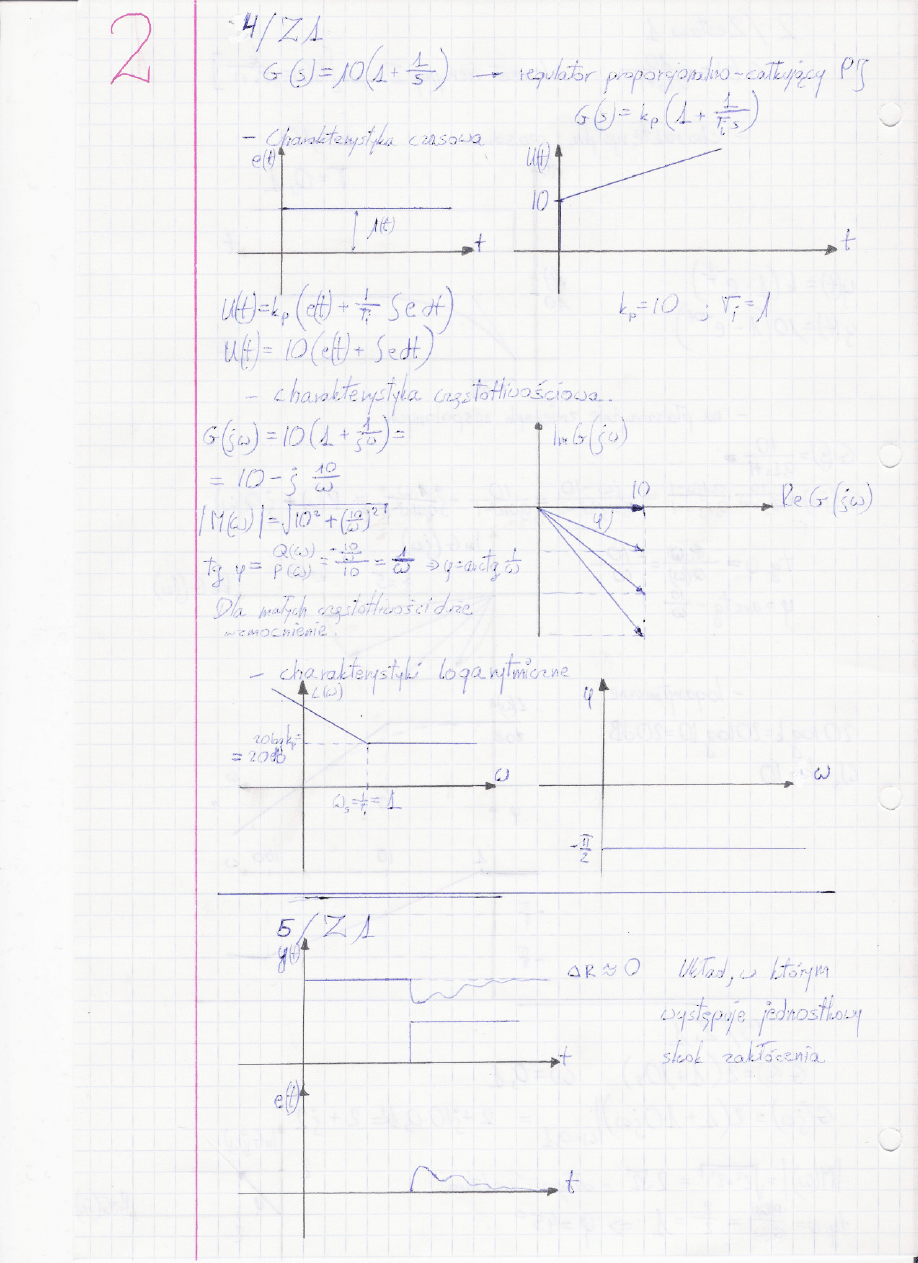 2
4/Z1
G(s)=10(1+1/s) → regulator proporcjonalno-całkujący PI
G(s)=kp(1+1/Ti s)
- charakterystyka czasowa
e(t)
1(t)
t
U(t)
10
t
U(t)=kp(e(t)+1/Ti ∫edt)
kp=10 ; Ti=1
U(t)=10(e(t)+∫edt)
- charakterystyka częstotliwościowa.
G(jω)=10(1+1/jω)=
= 10-j 10/ω
|M(ω)|=√(10²+(10/ω)²)
tg φ = Q(ω)/P(ω) = (-10/ω)/10 = 1/ω ⇒ φ=arctg 1/ω
Dla małych częstotliwości duże
wzmocnienie.
Im G(jω)
10
Re G(jω)
φ
- charakterystyki logarytmiczne
L(ω)
20logkp=
=20dB
ω
ωs=1/Ti=1
φ
ω
-π/2
5/Z1
y(t)
ΔR≈0
t
Układ, w którym
występuje jednostkowy
skok zakłócenia
e(t)
t